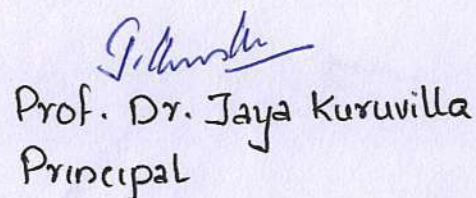 Prof. Dr. Jaya Kuruvilla
Principal